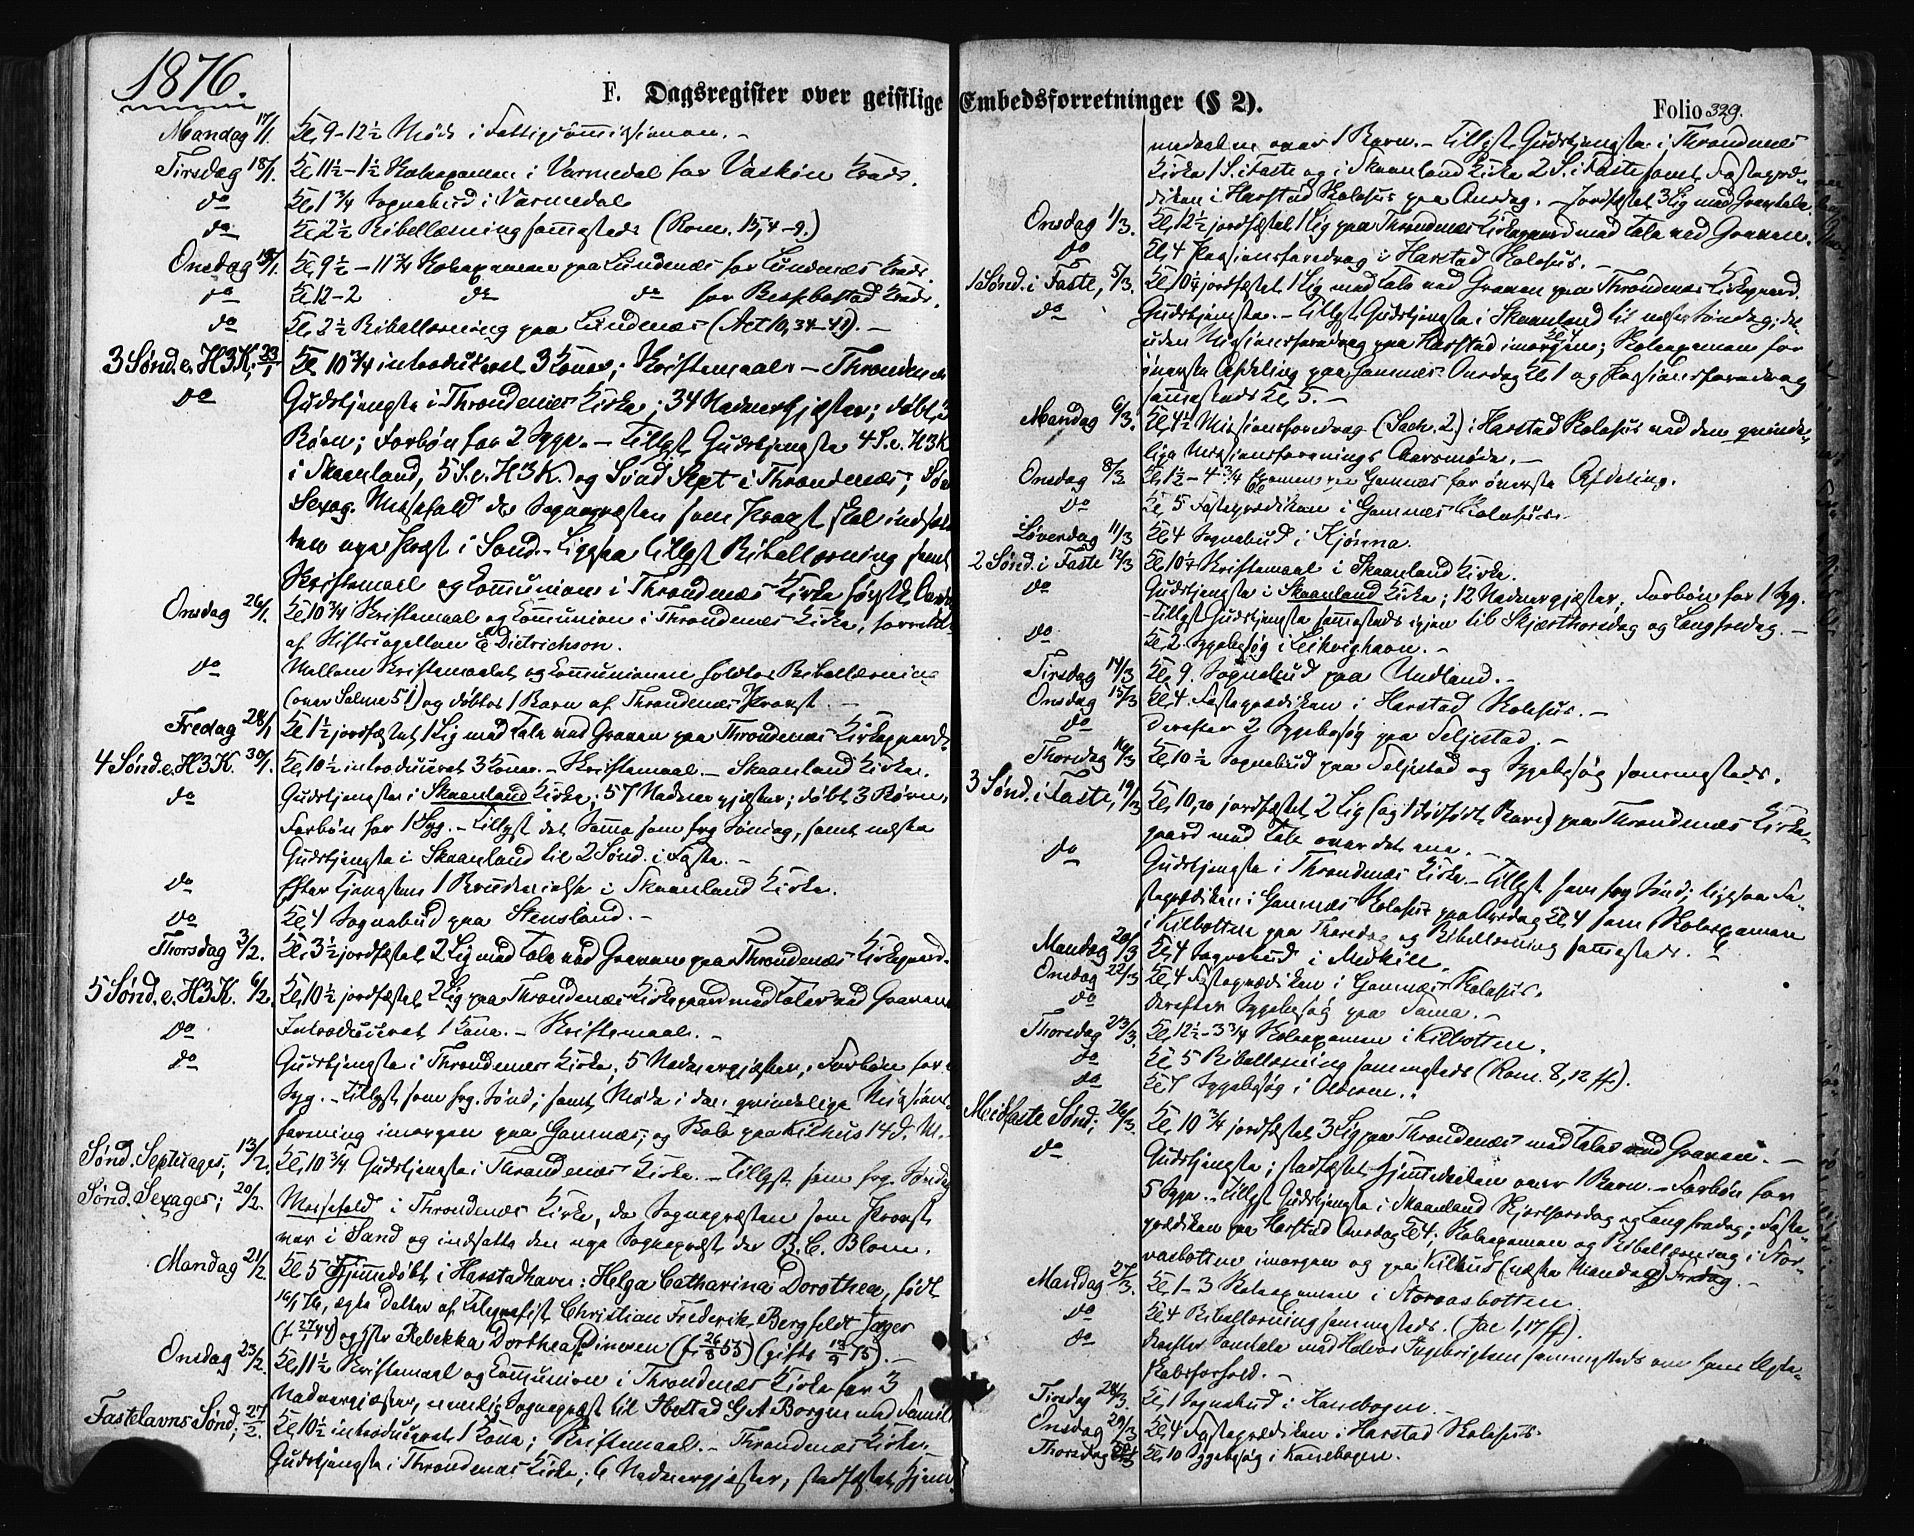 1876.
F. Dagsregister over geistlige Embedsforretninger (§ 2).
Folio 329.
Mandag 17/1. Kl. 9-12½ Møde i Fattigcommissionen. -
Tirsdag 18/1. Kl. 11½-1½ Skoleexamen i Varmedal for Kreds.
do Kl. 1¾ Sognebud i Varmedal
do Kl. 2½ Bibellæsning sammesteds (Rom. 15,4-9.)
Onsdag 19/1. Kl. 9½-11¾ Skoleexamen paa Lundenæs for Lundenæs Kreds.
do Kl. 12-2 do do for Kreds.
do Kl. 2½ Bibellæsning paa Lundenæs (Act 10,34-41). -
3 Sønd. e. H3K. 23/1 Kl 10¾ introduceret 3 Koner; Skriftemaal - Throndenæs
do Gudstjeneste i Throndenæs Kirke; 34 Nadvergjæster; døbt 3
Børn; Forbøn for 2 Syge. - Tillyst Gudstjeneste 4 S. e. H3K
i Skaanland, 5 S. e. H3K. og Sønd Sept i Throndenæs; Søn
Sexag. Messefald da Sognepræsten som Provst skal indsætte
den nye Præst i Sand. - Ligesaa tillyst Bibellæsning samt
Skriftemaal og Communion i Throndenæs Kirke førstk. Onsd
Onsdag 26/1 Kl. 10¾ Skriftemaal og Communion i Throndenæs Kirke, forrettet
af Stiftscapellan E Dietrichson.
do Mellem Skriftemaalet og Communionen holdtes Bibellæsning
(over Salme 51) og døbtes 1 Barn af Throndenæs Provst. -
Fredag 28/1 Kl 1½ jordfæstet 1 Lig med Tale ved Graven paa Throndenæs Kirkegaard.
4 Sønd. e. H3K. 30/1. Kl. 10½ introduceret 3 Koner. - Skriftemaal. - Skaanland Kirke.
do Gudstjeneste i Skaanland Kirke; 57 Nadvergjæster; døbt 3 Børn,
Forbøn for 1 Syg. - Tillyst det Samme som frg Søndag, samt næste
Gudstjeneste i Skaanland til 2 Sønd. i Faste. -
do Efter Tjenesten 1 Brudevielse i Skaanland Kirke.
do Kl 4 Sognebud paa Stensland. -
Thorsdag 3/2. Kl. 3½ jordfæstet 2 Lig med Tale ved Graven paa Throndenæs Kirkegaard.
5 Sønd. e. H3K. 6/2. Kl. 10½ jordfæstet 2 Lig paa Throndenæs Kirkegaard med Taler ved Graven
do Introduceret 1 Kone. - Skriftemaal. -
do Gudstjeneste i Throndenæs Kirke, 5 Nadvergjæster; Forbøn for 1
Syg. - Tillyst som frg. Sønd; samt Møde i den qvindelige Missions
forening imorgen paa Gamnæs, og Skole paa Kilhus 14 d. M.
Sønd. Septuages; 13/2. Kl. 10¾ Gudstjeneste i Throndenæs Kirke. - Tillyst som frg. Søndag
Sønd. Sexages; 20/2. Messefald i Throndenæs Kirke, da Sognepræsten som Provst
var i Sand og indsatte den nye Sognepræst der B. C. Blom.
Mandag 21/2. Kl 5 Hjemmedøbt i Harstadhavn: Helga Catharina Dorothea, født
16/1 76, ægte Datter af Telegrafist Christian Frederik Bergfeldt Jæger
(f. 27/1 44) og Hstr Rebekka Dorthea Dineren (f. 26/8 55) (gifte 13/9 75). -
Onsdag 23/2. Kl. 11½ Skriftemaal og Communion i Throndenæs Kirke for 3
Nadvergjæster, nemlig Sognepræst til Ibestad G A Borgen med Famil
Fastelavns Sønd; 27/2. Kl 10½ introduceret 1 Kone; Skriftemaal. - Throndenæs Kirke.
Gudstjeneste i Throndenæs Kirke; 6 Nadvergjæster; stadfæstet Hjem
medaaben over 1 Barn. - Tillyst Gudstjeneste i Throndenæs
Kirke 1 S. i Faste og i Skaanland Kirke 2 S. i Faste samt Fastepræ-
diken i Harstad Skolehus paa Onsdag. - Jordfæstet 3 Lig med Gravtale
Onsdag 1/3. Kl. 12½ jordfæstet 1 Lig paa Throndenæs Kirkegaard med Tale ved Graven.
do Kl. 4 Passionsforedrag i Harstad Skolehus. -
1 Sønd. i Faste, 5/3. Kl 10¼ jordfæstet 1 Lig med Tale ved Graven paa Throndenæs Kirkegaard.
do Gudstjeneste. - Tillyst Gudstjeneste i Skaanland til næste Søndag; des-
uden Missionsforedrag paa Harstad imorgen Kl 4; Skoleexamen for
øverste Afdeling paa Gamnæs Onsdag Kl 1 og Passionsforedrag
sammesteds Kl 5. -
Mandag 6/3. Kl 4½ Missionsforedrag (Sach. 2.) i Harstad Skolehus ved den qvinde-
lige Missionsforenings Aarsmøde. -
Onsdag 8/3 Kl. 1½-4¾ Examen paa Gamnæs for øverste Afdeling.
do Kl. 5 Fasteprædiken i Gamnæs Skolehus.
Løverdag 11/3 Kl 4 Sognebud i Kjønna.
2 Sønd. i Faste 12/3 Kl 10½ Skriftemaal i Skaanland Kirke.
do Gudstjeneste i Skaanland Kirke; 12 Nadvergjæster; Forbøn for 1 Syg.
- Tillyst Gudstjeneste sammesteds igjen til Skjærthorsdag og Langfredag. -
do Kl. 2 Sygebesøg i Leikvighavn. -
Tirsdag 14/3 Kl 9. Sognebud paa Undland. -
Onsdag 15/3 Kl 4 Fasteprædiken i Harstad Skolehus. -
do Derefter 2 Sygebesøg paa Seljestad. -
Thorsdag 16/3 Kl. 10½ Sognebud paa Seljestad og Sygebesøg sammesteds.
3 Sønd. i Faste, 19/3 Kl, 10,20 jordfæstet 2 Lig (og 1 dødfødt Barn) paa Throndenæs Kirke-
gaard med Tale over det ene. -
do Gudstjeneste i Throndenæs Kirke. - Tillyst som frg Sønd; ligesaa Fa-
steprædiken i Gamnæs Skolehus paa Onsdag Kl 4 som Skoleexamen
i Kilbotten paa Thorsdag og Bibellæsning sammesteds.
Mandag 20/3 Kl 4 Sognebud i Melkill.
Onsdag 22/3 Kl 4 Fasteprædiken i Gamnæs Skolehus.
do derefter Sygebesøg paa Sama. -
Thorsdag 23/3. Kl. 12½-3¾ Skoleexamen i Kilbotten.
do Kl 5 Bibellæsning sammesteds (Rom. 8,12 ff).
do Kl 7 Sygebesøg i Olderen.
Meidfaste Sønd; 26/3. Kl 10¾ jordfæstet 3 Lig paa Throndenæs med Tale ved Graven. -
do Gudstjeneste; stadfæstet Hjemmedaaben over 1 Barn. - Forbøn for
5 Syge. - Tillyst Gudstjeneste i Skaanland Skjærthorsdag og Langfredag; Faste-
prædiken paa Harstad Onsdag Kl 4; Skoleexamen og Bibellæsning i Stor-
vasbotten imorgen og paa Kilhus (næste Mandag) Fredag. -
Mandag 27/3. Kl 1-3 Skoleexamen i Storvasbotten
do Kl 4 Bibellæsning sammesteds. (Jac 1,17 ff).
do derefter Samtale med Ingebrigtsen sammesteds om hans Ægte-
skabsforhold. -
Tirsdag 28/3. Kl. 1 Sognebud i Kanebogen. -
Onsdag 29/3 Kl. 4 Fasteprædiken i Harstad Skolehus.
Thorsdag Kl. 10 Sygebesøg i Kanebogen.